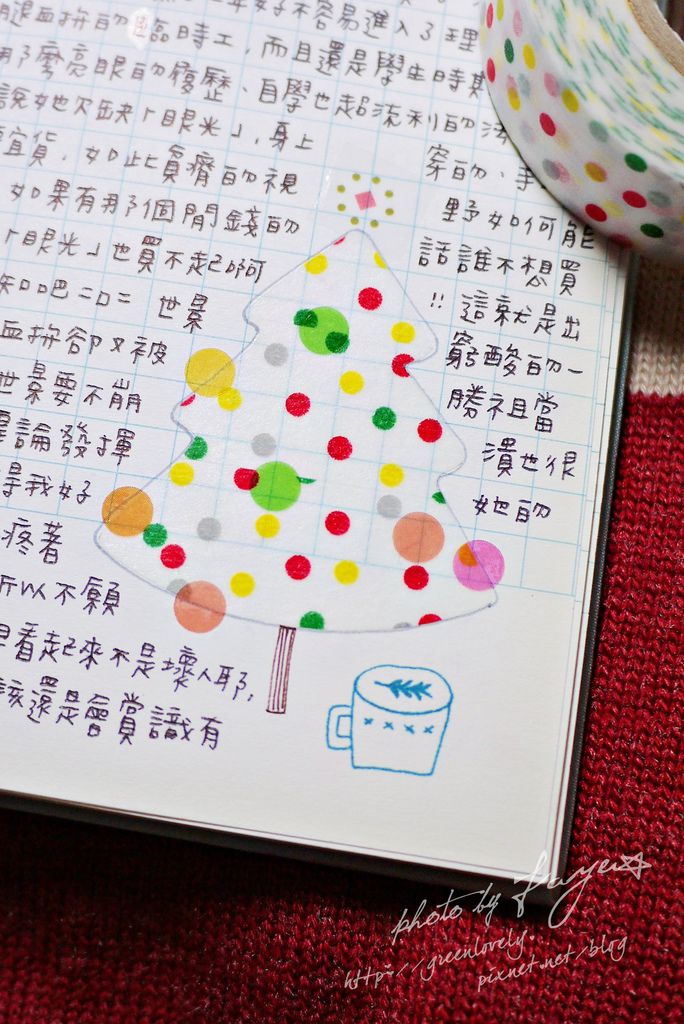 年好不容易進入了理
腿血拚的臨時工,而且還是學生時期
那麼亮眼的履歷、自學也超流利的法
說她欠缺「眼光」,身上 穿的、手
宜貨,如此貧瘠的視 野如何能
如果有那個閒錢的 話誰不想買
「眼光」也買不起啊 !! 這就是出
知吧=口= 世界 窮酸的一
血拚卻又被 勝祖當
世界要不崩 潰也很
論發揮 她的
得我好
疼著
所以不願
早看起來不是壞人耶,
該還是會賞識有
photo by Faye
http://greenlovely.
pixnet.net/blog